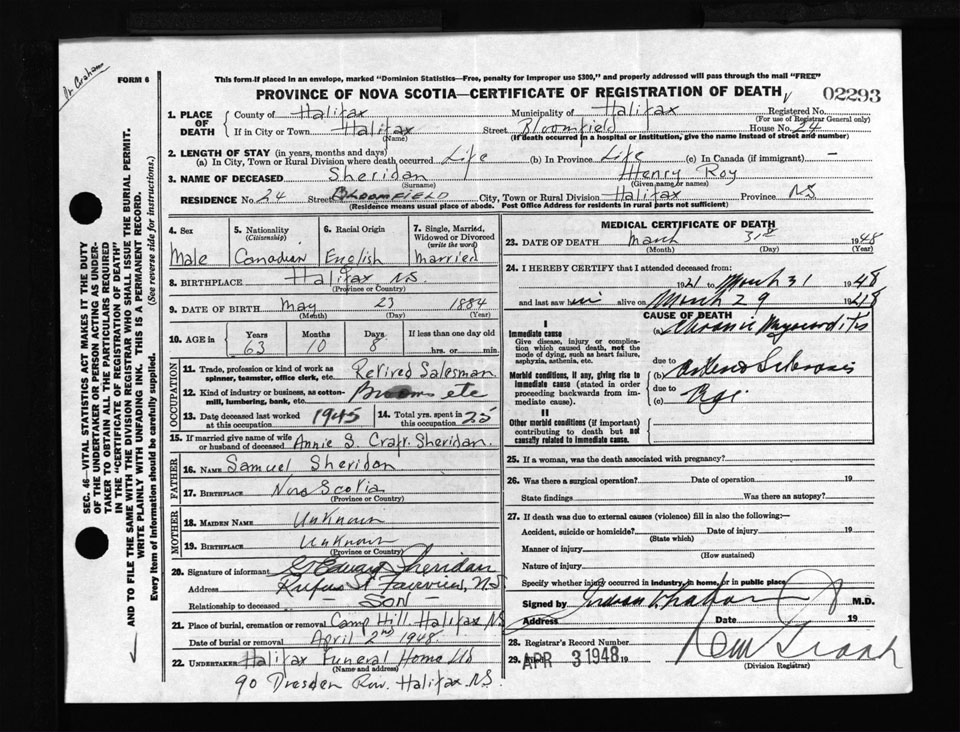 Dr Graham
FORM 6
This form if placed in an envelope, marked "Dominion Statistics—Free, penalty for improper use $300," and properly addressed will pass through the mail "FREE"
PROVINCE OF NOVA SCOTIA—CERTIFICATE OF REGISTRATION OF DEATH
02293
1. PLACE OF DEATH { County of Halifax Municipality of Halifax Registered No.
(For use of Registrar General only)
If in City or Town Halifax Street Bloomfield House No. 24
(Name) (If death occurred in a hospital or institution, give the name instead of street and number)
2. LENGTH OF STAY (in years, months and days)
(a) In City, Town or Rural Division where death occurred Life (b) In Province Life (c) In Canada (if immigrant) —
3. NAME OF DECEASED Sheridan Henry Roy
(Surname) (Given name or names)
RESIDENCE No. 24 Street BLOOMFIELD City, Town or Rural Division Halifax Province NS
(Residence means usual place of abode. Post Office Address for residents in rural parts not sufficient)
SEC. 46—VITAL STATISTICS ACT MAKES IT THE DUTY
OF THE UNDERTAKER OR PERSON ACTING AS UNDER-
TAKER TO OBTAIN ALL THE PARTICULARS REQUIRED
IN THE "CERTIFICATE OF REGISTRATION OF DEATH"
AND TO FILE THE SAME WITH THE DIVISION REGISTRAR WHO SHALL ISSUE THE BURIAL PERMIT.
WRITE PLAINLY WITH UNFADING INK. THIS IS A PERMANENT RECORD.
Every item of information should be carefully supplied. (See reverse side for instructions.)
4. Sex 5. Nationality (Citizenship) 6. Racial Origin 7. Single, Married, Widowed or Divorced (write the word)
Male Canadian English Married
8. BIRTHPLACE Halifax NS
(Province or Country)
9. DATE OF BIRTH May 23 1884
(Month) (Day) (Year)
10. AGE in { Years Months Days If less than one day old
63 10 8 hrs. or min.
OCCUPATION
11. Trade, profession or kind of work as spinner, teamster, office clerk, etc. Retired Salesman
12. Kind of industry or business, as cotton-mill, lumbering, bank, etc. Brooms etc
13. Date deceased last worked at this occupation 1945 14. Total yrs. spent in this occupation 25
15. If married give name of wife or husband of deceased Annie S. Craft. Sheridan.
FATHER
16. NAME Samuel Sheridan
17. BIRTHPLACE Nova Scotia
(Province or Country)
MOTHER
18. MAIDEN NAME Unknown
19. BIRTHPLACE Unknown
(Province or Country)
20. Signature of informant Sheridan
Address Rufus St Fairview, N.S
Relationship to deceased — SON —
21. Place of burial, cremation or removal Camp Hill. Halifax NS
Date of burial or removal April 2nd 1948.
22. UNDERTAKER Halifax Funeral Home Ltd
90 Dresden Row. Halifax. NS.
MEDICAL CERTIFICATE OF DEATH
23. DATE OF DEATH March 31st 1948
(Month) (Day) (Year)
24. I HEREBY CERTIFY that I attended deceased from:
1921 to March 31 1948
and last saw him alive on March 29 1948
CAUSE OF DEATH
I
Immediate cause (a) Chronic Myocarditis
Give disease, injury or complication which caused death, not the mode of dying, such as heart failure, asphyxia, asthenia, etc.
due to
Morbid conditions, if any, giving rise to immediate cause (stated in order proceeding backwards from immediate cause). (b) Arterio Sclerosis
due to
(c) Age
II
Other morbid conditions (if important) contributing to death but not causally related to immediate cause.
25. If a woman, was the death associated with pregnancy?
26. Was there a surgical operation? Date of operation 19
State findings Was there an autopsy?
27. If death was due to external causes (violence) fill in also the following:—
Accident, suicide or homicide? Date of injury 19
(State which)
Manner of injury
(How sustained)
Nature of injury
Specify whether injury occurred in industry, in home, or in public place
Signed by M.D.
Address Date 19
28. Registrar's Record Number
29. Filed APR 3 1948 19
(Division Registrar)